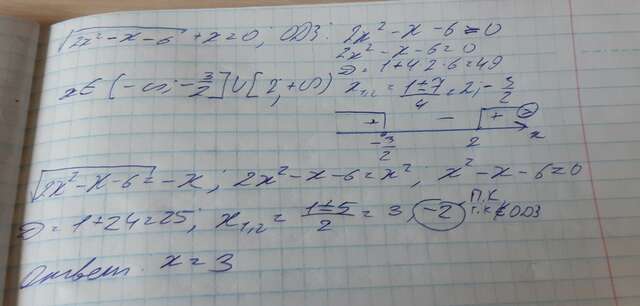 √(2x² - x - 6) + x = 0; ОДЗ: 2x² - x - 6 ≥ 0
2x² - x - 6 = 0
D = 1 + 4·2·6 = 49
x ∈ (-∞; -3/2] ∪ [2; +∞) x₁,₂ = (1±7)/4 = 2; -3/2
+ - +
-3/2 2 x
√(2x² - x - 6) = -x; 2x² - x - 6 = x²; x² - x - 6 = 0
D = 1 + 24 = 25; x₁,₂ = (1±5)/2 = 3, -2 П.К
т.к ∉ ОДЗ
Ответ: x = 3